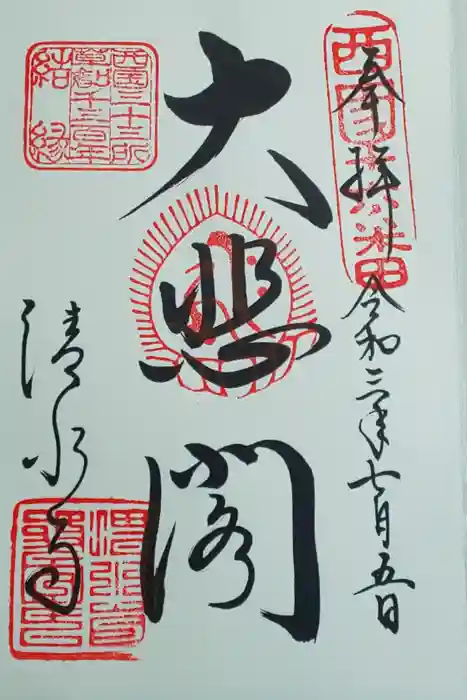 西国第十六番
奉拝 令和三年七月五日
大悲閣
西国三十三所
草創千三百年
結縁
清水寺